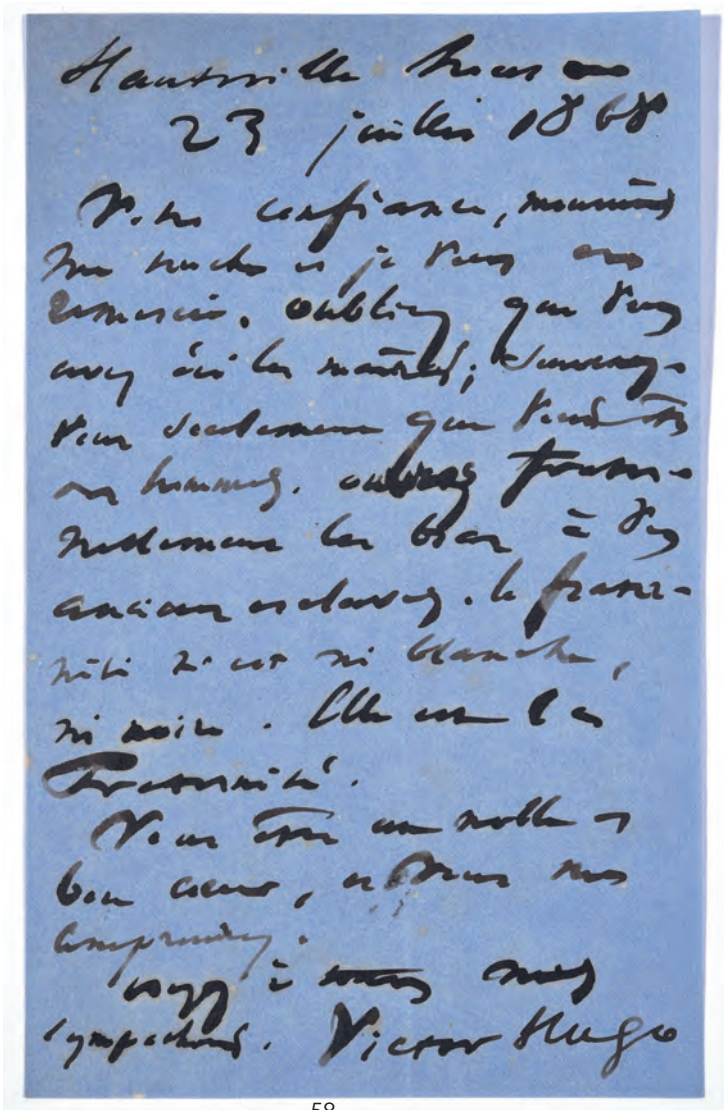 Hauteville House
23 juillet 1868
Votre confiance, monsieur
me touche et je vous en
remercie. oubliez que vous
avez été les maîtres; souvenez-
vous seulement que vous êtes
des hommes. ouvrez frater-
nellement les bras à vos
anciens esclaves. la frater-
nité n'est ni blanche,
ni noire. Elle est la
Fraternité.
Vous êtes un noble et
bon cœur, et vous me
comprenez.
croyez à toutes mes
sympathies. Victor Hugo
58